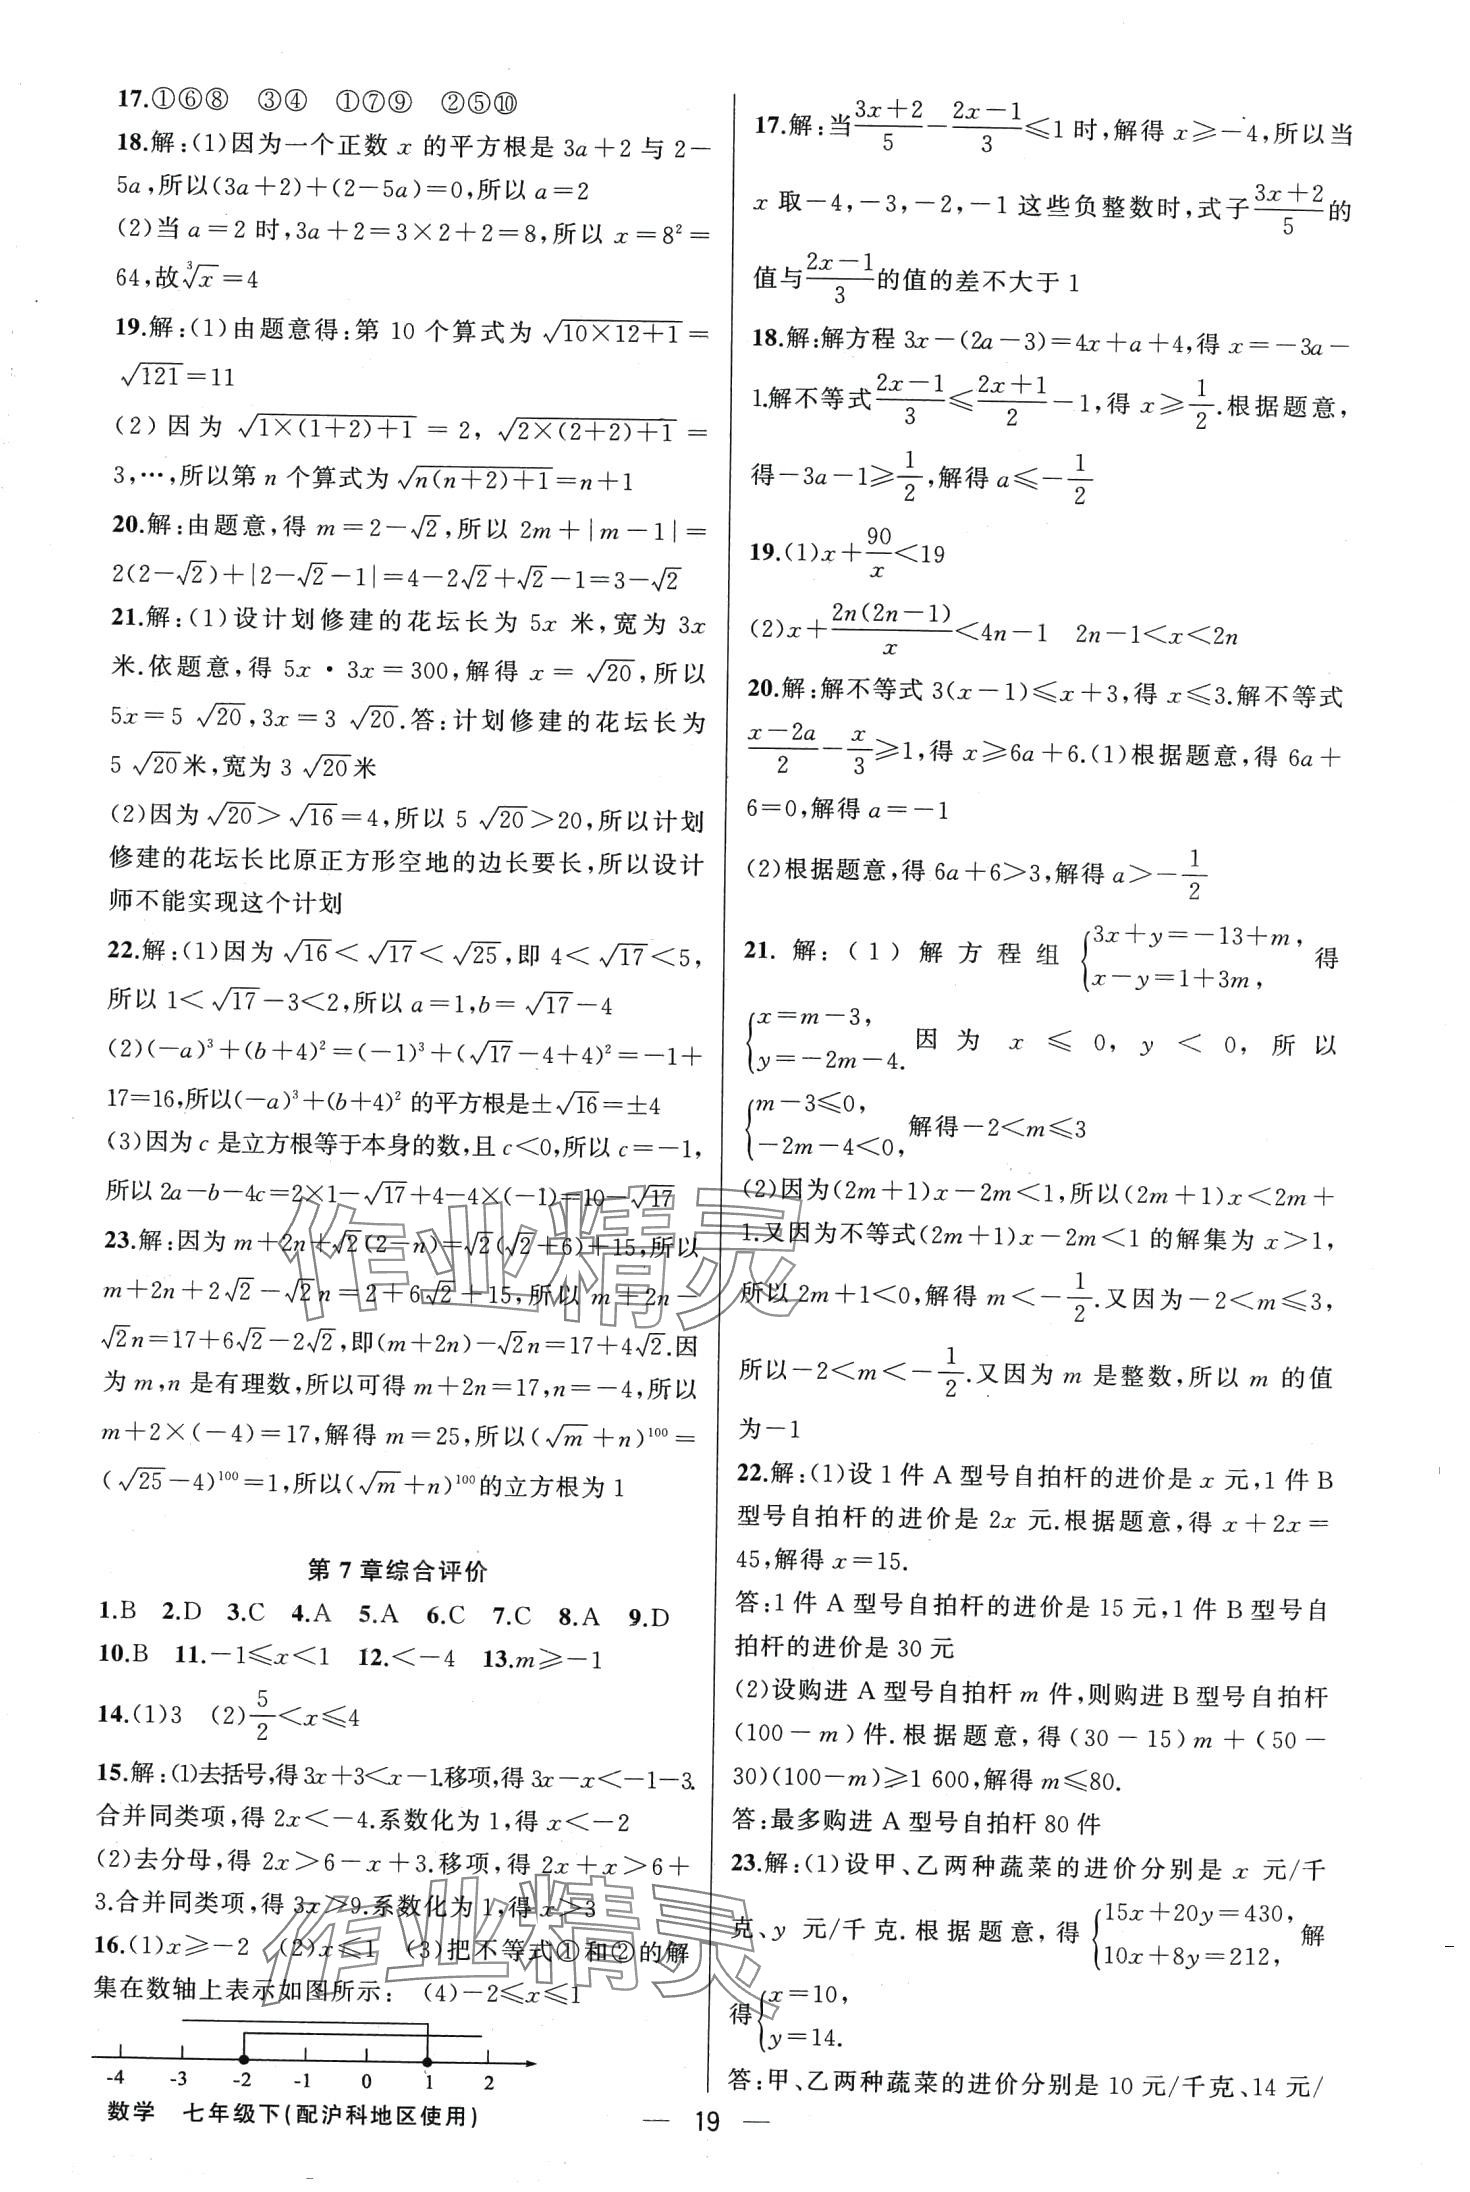 17.①⑥⑧ ③④ ①⑦⑨ ②⑤⑩
18.解:(1)因为一个正数 x 的平方根是 3a+2 与 2-
5a,所以(3a+2)+(2-5a)=0,所以 a=2
(2)当 a=2 时,3a+2=3×2+2=8,所以 x=8²=
64,故∛x=4
19.解:(1)由题意得:第 10 个算式为 √(10×12+1)=
√121=11
(2)因为 √(1×(1+2)+1)=2,√(2×(2+2)+1)=
3,…,所以第 n 个算式为√(n(n+2)+1)=n+1
20.解:由题意,得 m=2-√2,所以 2m+|m-1|=
2(2-√2)+|2-√2-1|=4-2√2+√2-1=3-√2
21.解:(1)设计划修建的花坛长为 5x 米,宽为 3x
米.依题意,得 5x·3x=300,解得 x=√20,所以
5x=5√20,3x=3√20.答:计划修建的花坛长为
5√20米,宽为 3√20米
(2)因为√20>√16=4,所以 5√20>20,所以计划
修建的花坛长比原正方形空地的边长要长,所以设计
师不能实现这个计划
22.解:(1)因为√16<√17<√25,即 4<√17<5,
所以 1<√17-3<2,所以 a=1,b=√17-4
(2)(-a)³+(b+4)²=(-1)³+(√17-4+4)²=-1+
17=16,所以(-a)³+(b+4)² 的平方根是±√16=±4
(3)因为 c 是立方根等于本身的数,且 c<0,所以 c=-1,
所以 2a-b-4c=2×1-√17+4-4×(-1)=10-√17
23.解:因为 m+2n+√2(2-n)=√2(√2+6)+15,所以
m+2n+2√2-√2n=2+6√2+15,所以 m+2n-
√2n=17+6√2-2√2,即(m+2n)-√2n=17+4√2.因
为 m,n 是有理数,所以可得 m+2n=17,n=-4,所以
m+2×(-4)=17,解得 m=25,所以(√m+n)¹⁰⁰=
(√25-4)¹⁰⁰=1,所以(√m+n)¹⁰⁰的立方根为 1
第 7 章综合评价
1.B 2.D 3.C 4.A 5.A 6.C 7.C 8.A 9.D
10.B 11.-1≤x<1 12.<-4 13.m≥-1
14.(1)3 (2)5/2<x≤4
15.解:(1)去括号,得 3x+3<x-1.移项,得 3x-x<-1-3.
合并同类项,得 2x<-4.系数化为 1,得 x<-2
(2)去分母,得 2x>6-x+3.移项,得 2x+x>6+
3.合并同类项,得 3x>9.系数化为 1,得 x>3
16.(1)x≥-2 (2)x≤1 (3)把不等式①和②的解
集在数轴上表示如图所示: (4)-2≤x≤1
-4 -3 -2 -1 0 1 2
数学 七年级下(配沪科地区使用)
17.解:当(3x+2)/5-(2x-1)/3≤1 时,解得 x≥-4,所以当
x 取-4,-3,-2,-1 这些负整数时,式子(3x+2)/5的
值与(2x-1)/3的值的差不大于 1
18.解:解方程 3x-(2a-3)=4x+a+4,得 x=-3a-
1.解不等式(2x-1)/3≤(2x+1)/2-1,得 x≥1/2.根据题意,
得-3a-1≥1/2,解得 a≤-1/2
19.(1)x+90/x<19
(2)x+2n(2n-1)/x<4n-1 2n-1<x<2n
20.解:解不等式 3(x-1)≤x+3,得 x≤3.解不等式
(x-2a)/2-x/3≥1,得 x≥6a+6.(1)根据题意,得 6a+
6=0,解得 a=-1
(2)根据题意,得 6a+6>3,解得 a>-1/2
21.解:(1)解方程组{3x+y=-13+m, x-y=1+3m, 得
{x=m-3, y=-2m-4. 因为 x≤0,y<0,所以
{m-3≤0, -2m-4<0, 解得-2<m≤3
(2)因为(2m+1)x-2m<1,所以(2m+1)x<2m+
1.又因为不等式(2m+1)x-2m<1 的解集为 x>1,
所以 2m+1<0,解得 m<-1/2.又因为-2<m≤3,
所以-2<m<-1/2.又因为 m 是整数,所以 m 的值
为-1
22.解:(1)设 1 件 A 型号自拍杆的进价是 x 元,1 件 B
型号自拍杆的进价是 2x 元.根据题意,得 x+2x=
45,解得 x=15.
答:1 件 A 型号自拍杆的进价是 15 元,1 件 B 型号自
拍杆的进价是 30 元
(2)设购进 A 型号自拍杆 m 件,则购进 B 型号自拍杆
(100-m)件.根据题意,得(30-15)m+(50-
30)(100-m)≥1 600,解得 m≤80.
答:最多购进 A 型号自拍杆 80 件
23.解:(1)设甲、乙两种蔬菜的进价分别是 x 元/千
克、y 元/千克.根据题意,得{15x+20y=430, 10x+8y=212, 解
得{x=10, y=14.
答:甲、乙两种蔬菜的进价分别是 10 元/千克、14 元/
— 19 —
作业精灵
作业精灵